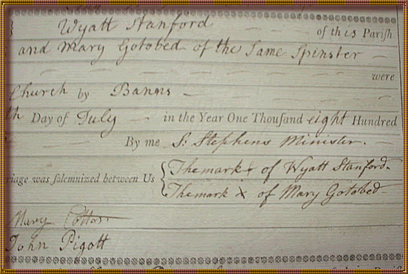 Wyatt Stanford of this Parish
and Mary Gotobed of the Same Spinster
were
Church by Banns
th Day of July in the Year One Thousand eight Hundred
By me S. Stephens Minister.
riage was solemnized between Us { The mark + of Wyatt Stanford
The mark X of Mary Gotobed
Mary Cotton
John Pigott